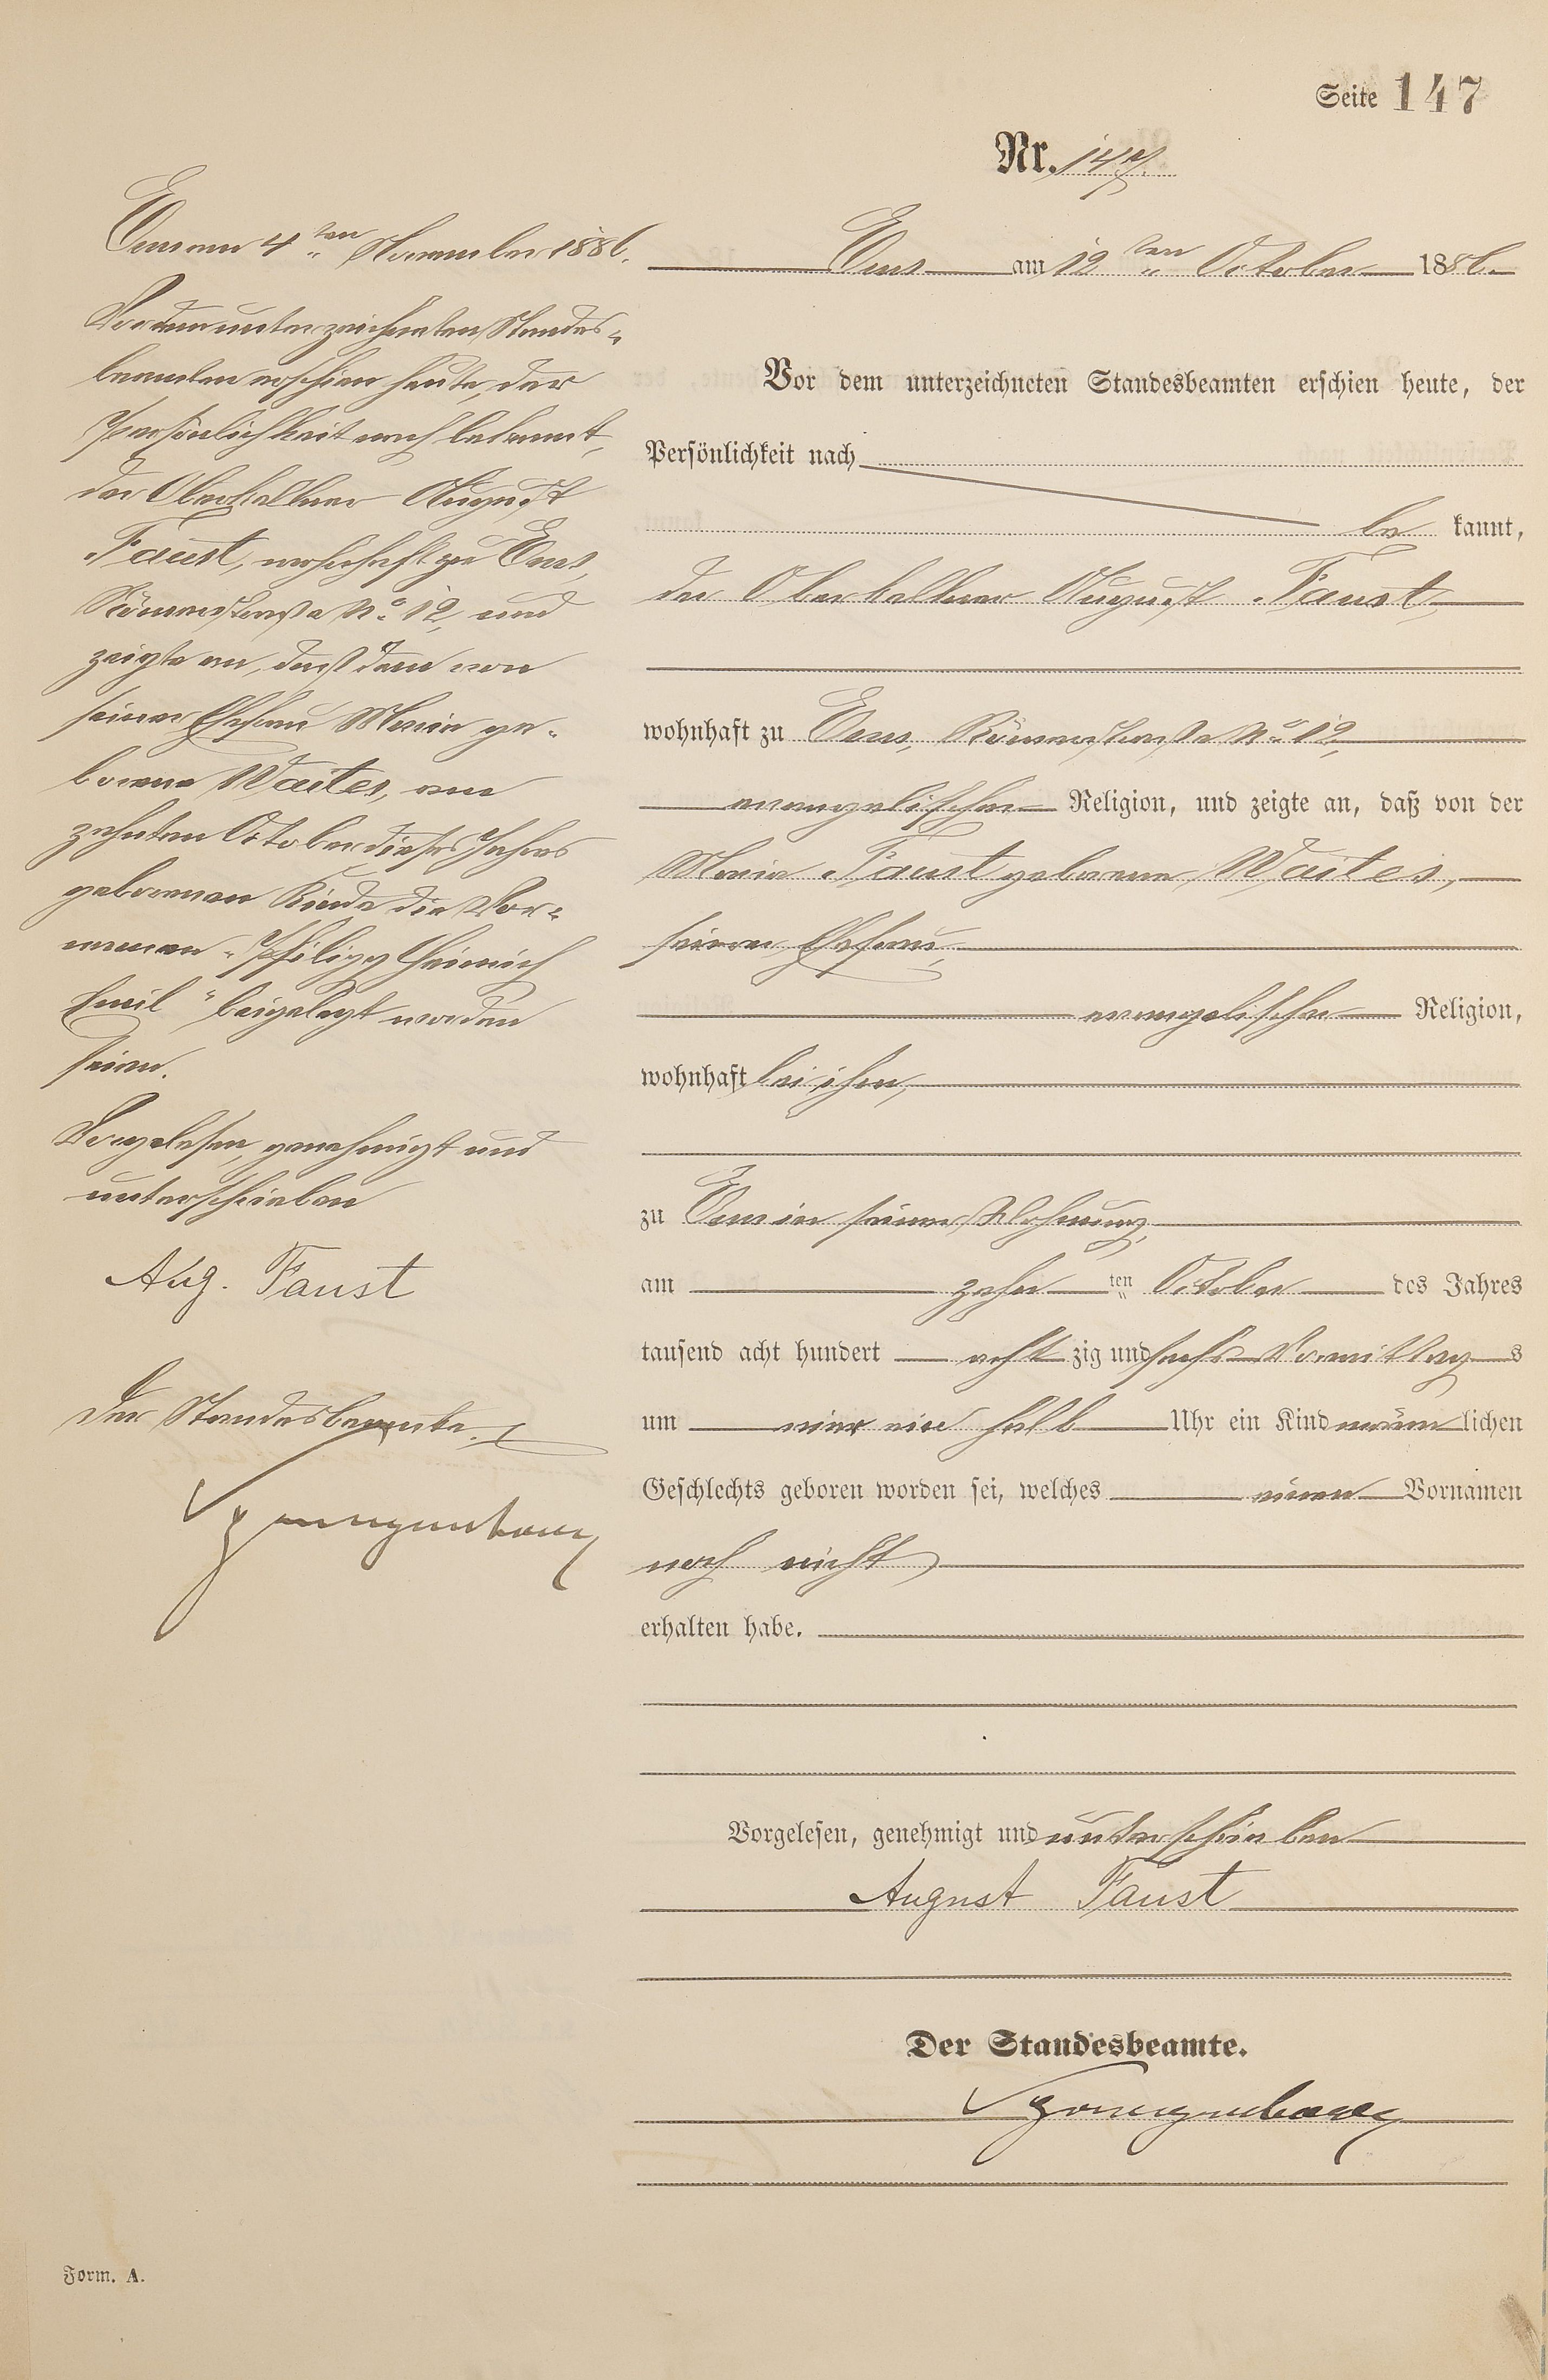 Seite 147
Nr. 147.
Ems am 12ten October 1886.
Vor dem unterzeichneten Standesbeamten erschien heute, der
Persönlichkeit nach
be kannt,
der Oberkellner August Faust,
wohnhaft zu Ems, Römerstraße No 12,
evangelischer Religion, und zeigte an, daß von der
Maria Faust geborene Waites,
seiner Ehefrau,
evangelischer Religion,
wohnhaft bei ihm,
zu Ems in seiner Wohnung,
am zehn ten October des Jahres
tausend acht hundert acht zig und sechs Vormittag s
um vier ein halb Uhr ein Kind männ lichen
Geschlechts geboren worden sei, welches einen Vornamen
noch nicht
erhalten habe.
Vorgelesen, genehmigt und unterschrieben
August Faust
Der Standesbeamte.
Ems am 4ten November 1886.
Vor dem unterzeichneten Standes-
beamten erschien heute, der
Persönlichkeit nach bekannt,
der Oberkellner August
Faust, wohnhaft zu Ems,
Römerstraße No 12, und
zeigte an, daß dem von
seiner Ehefrau Maria ge-
borene Waites, am
zehnten October dieses Jahres
geborenen Kinde die Vor-
namen „Philipp Heinrich
Emil“ beigelegt worden
seien.
Vorgelesen, genehmigt und
unterschrieben
Aug. Faust
Der Standesbeamte.
Form. A.